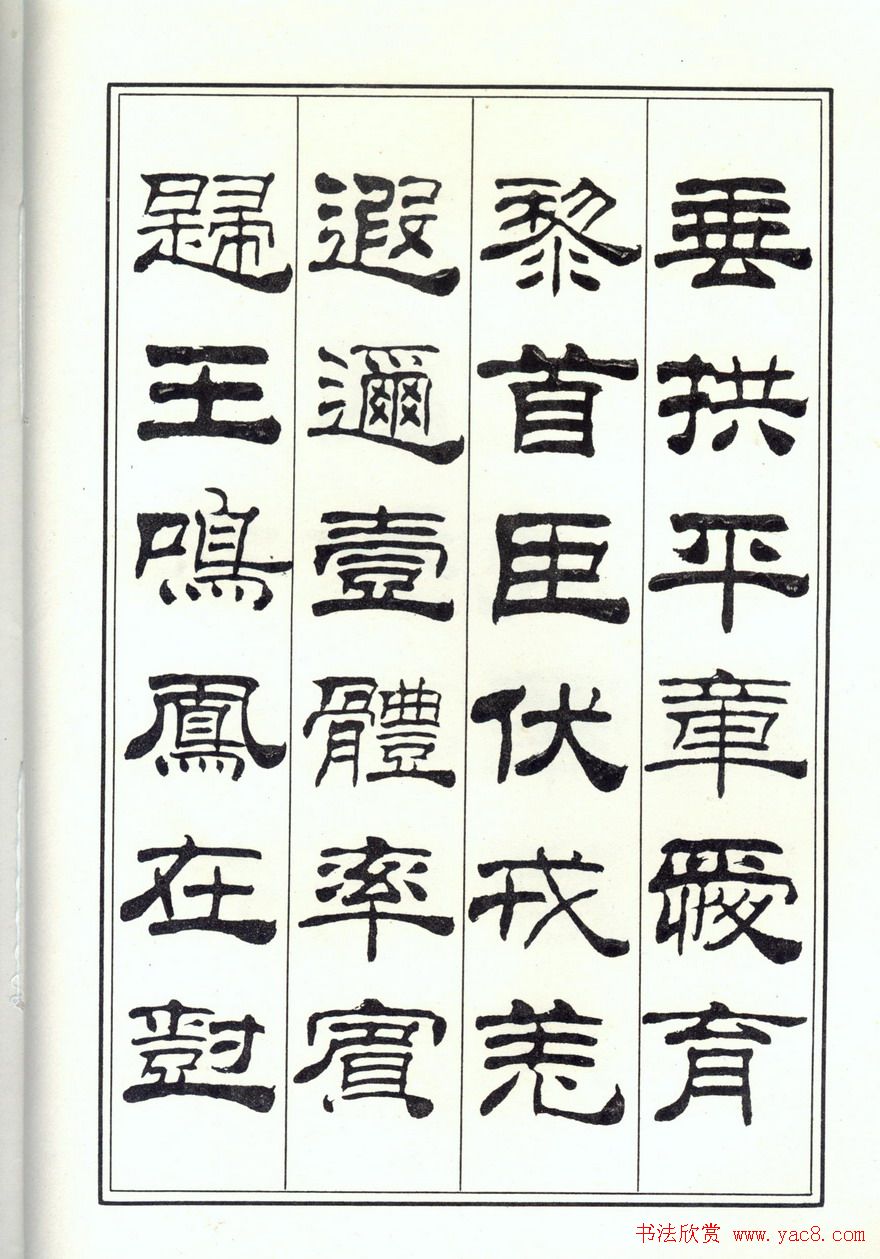 垂拱平章愛育
黎首臣伏戎羌
遐邇壹體率賓
歸王鳴鳳在樹
书法欣赏 www.yac8.com